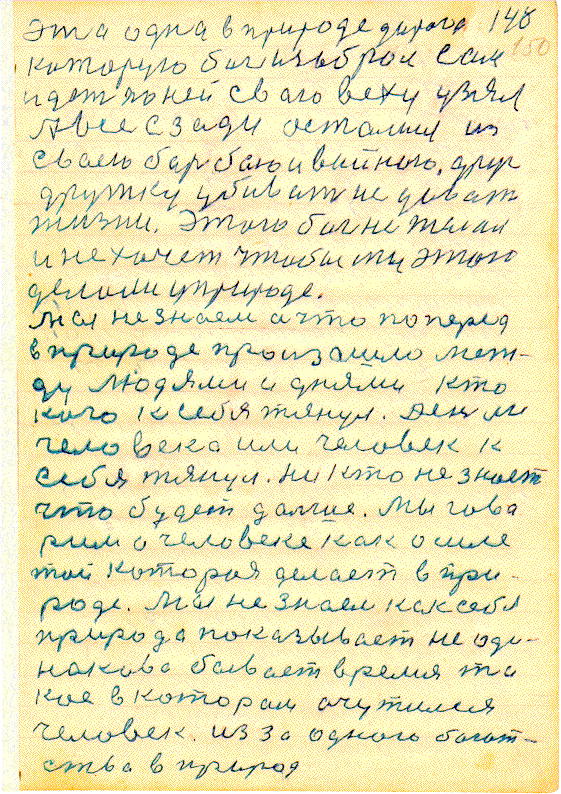 эта одна в природе дорога 148
150
которую бог избрал сам
идет по ней сваго веку узял
А все сзади остались из
сваею барбаю и вайною, друг
дружку убиват не дават
жизни. Этого бог не желал
и не хочет чтобы мы этого
делали у природе.
Мы не знаем а что поперед
в природе произашло меж-
ду людями и днями кто
кого к себя тянул. День ли
человека или человек к
себя тянул. Ни кто не знает
что будет далше. Мы гова
рим о человеке как о силе
той которая делает в при-
роде. Мы не знаем как себя
природа показывает не оди-
накова бывает время та
кое в котором очутился
человек. из за одного богат-
ства в природ